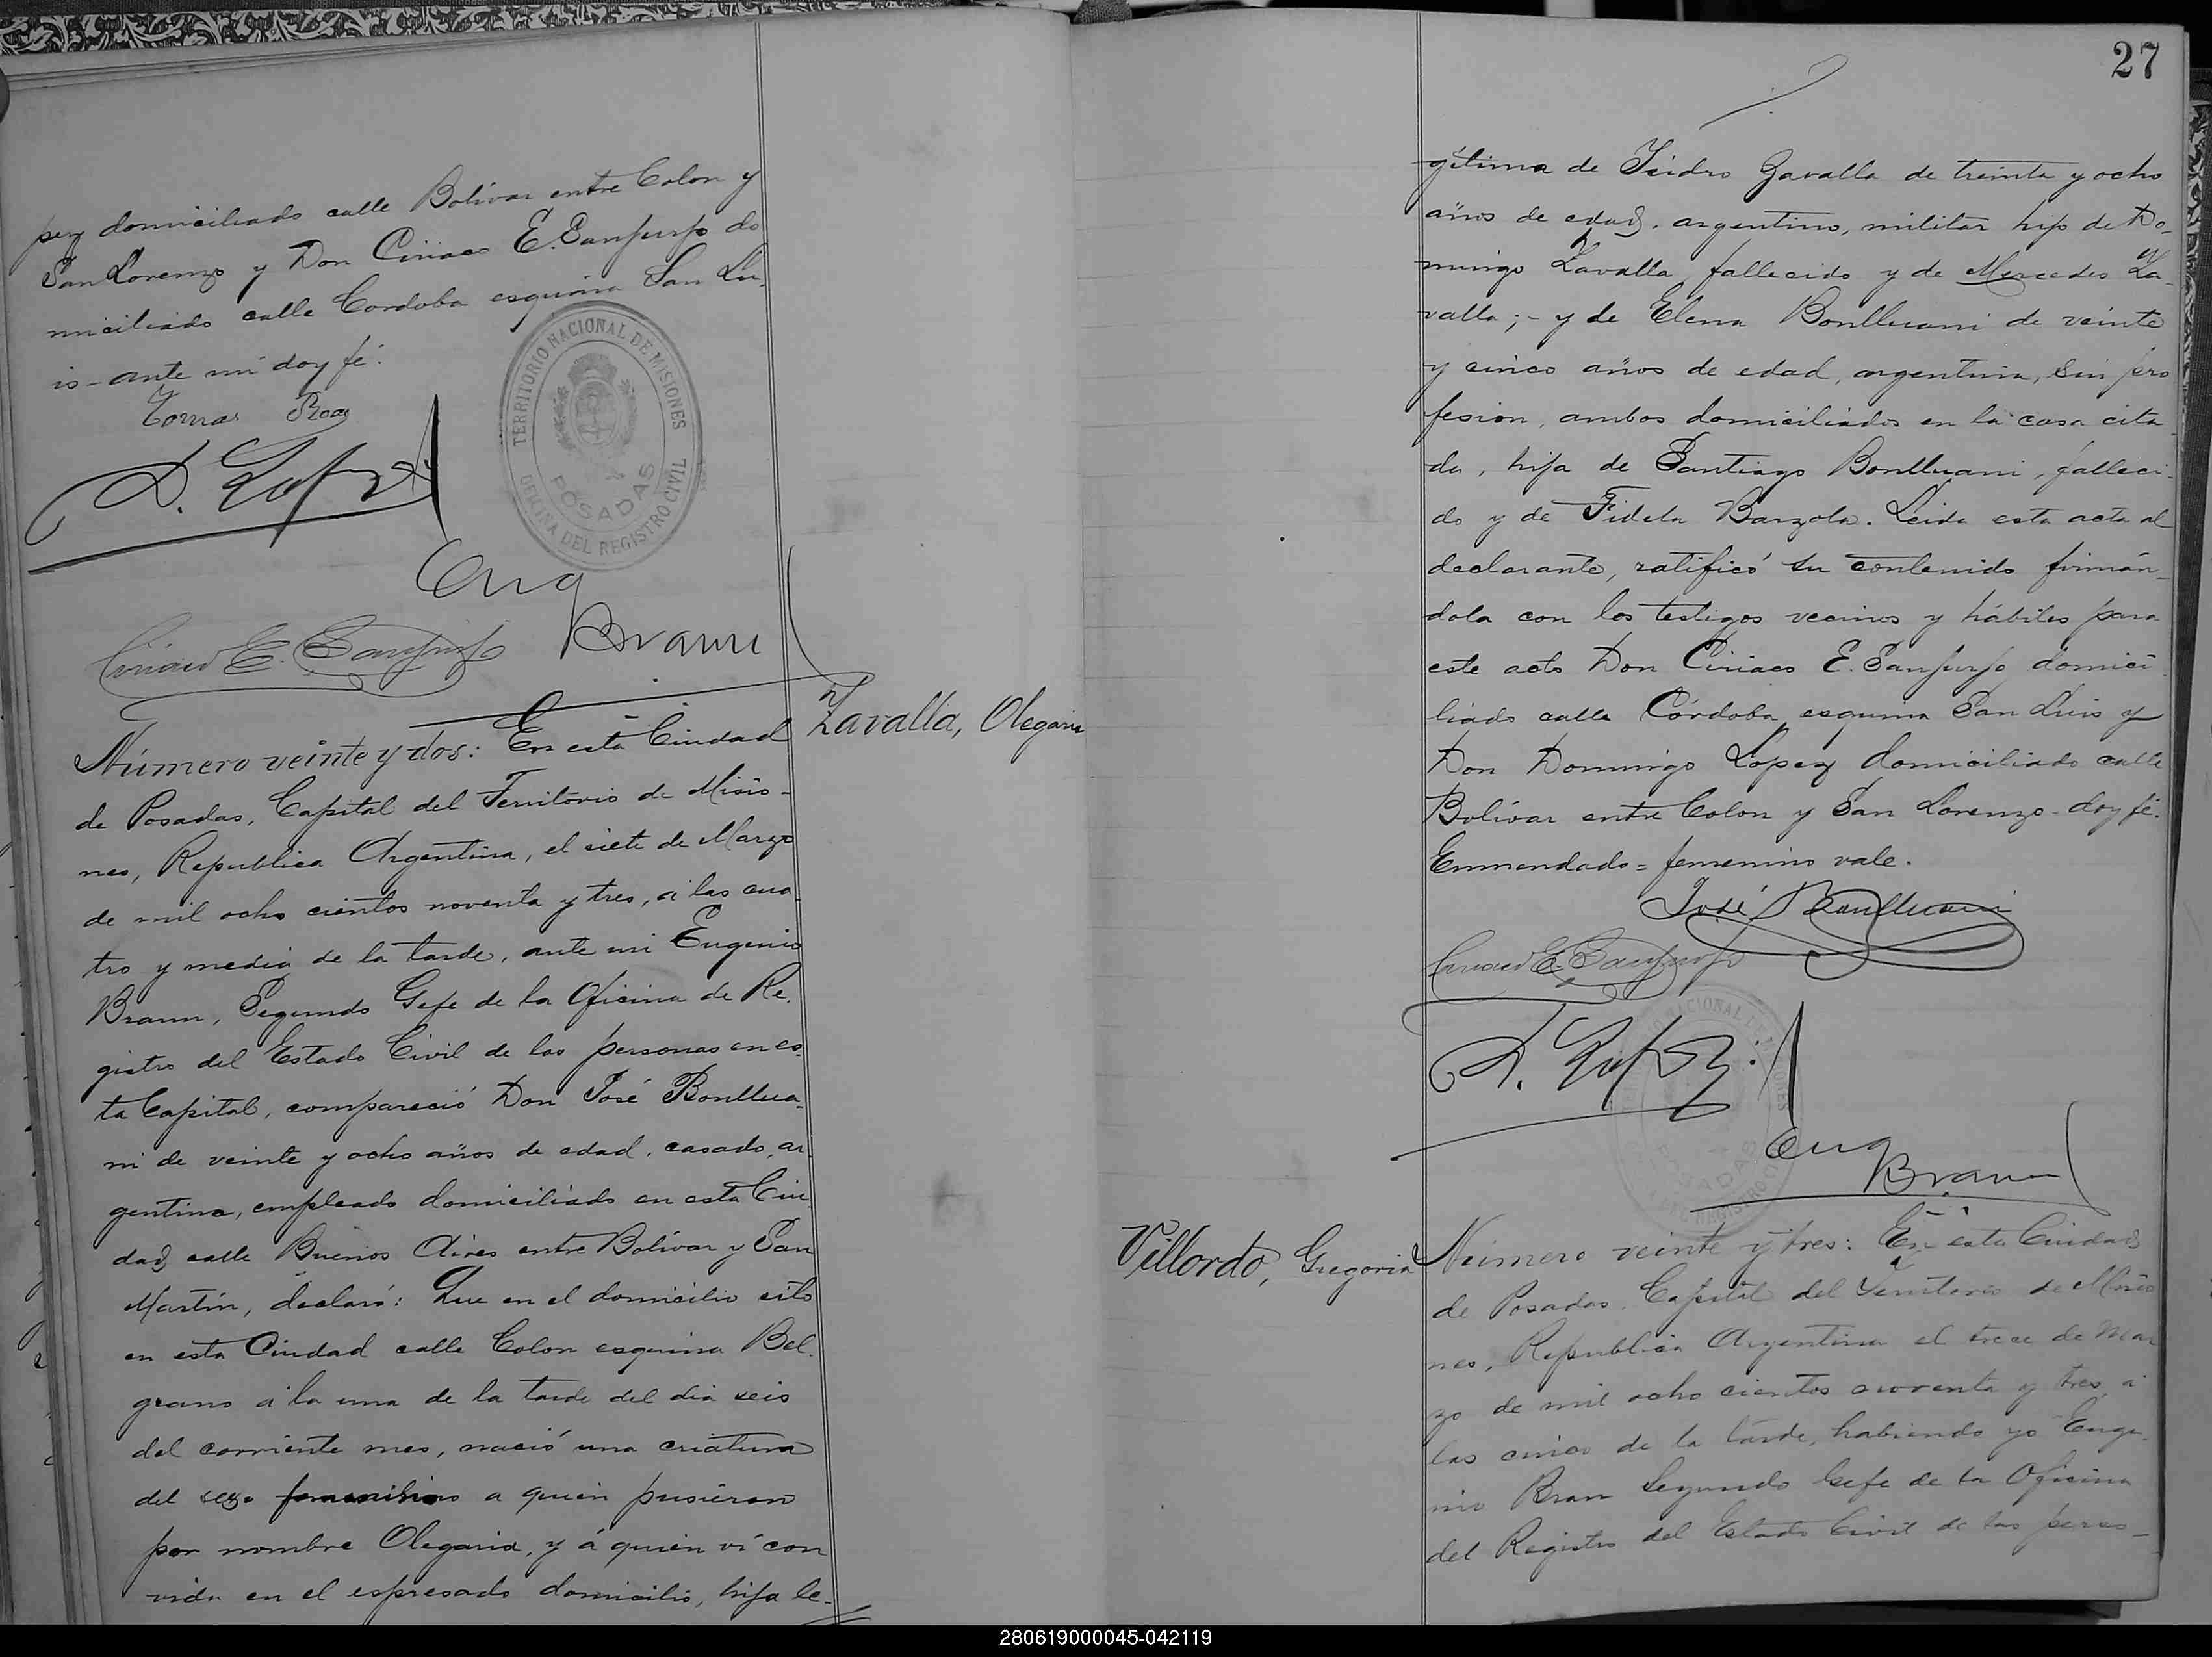 pez domiciliado calle Bolívar entre Colon y
San Lorenzo y Don Ciriaco E. Sanjurjo do
miciliado calle Cordoba esquina San Lu
is - ante mi doy fé.
Tomas Roa
D. Lopez
TERRITORIO NACIONAL DE MISIONES
POSADAS
OFICINA DEL REGISTRO CIVIL
Eug
Braun
Ciriaco E. Sanjurjo
Zavalla, Olegaria
Número veinte y dos: En esta Ciudad
de Posadas, Capital del Territorio de Misio-
nes, Republica Argentina, el siete de Marzo
de mil ocho cientos noventa y tres, á las cua
tro y media de la tarde, ante mi Eugenio
Braun, Segundo Gefe de la Oficina de Re.
gistro del Estado Civil de las personas en es.
ta Capital, compareció Don José Bonllua-
ni de veinte y ocho años de edad, casado, ar
gentino, empleado domiciliado en esta Ciu
dad calle Buenos Aires entre Bolívar y San
Martín, declaró: Que en el domicilio sito
en esta Ciudad calle Colon esquina Bel.
grano á la una de la tarde del dia seis
del corriente mes, nació una criatura
del sexo femenino a quien pusieron
por nombre Olegaria, y á quien ví con
vida en el espresado domicilio, hija le-
27
gítima de Isidro Zavalla de treinta y ocho
años de edad. argentino, militar hijo de Do-
mingo Zavalla, fallecido y de Mercedes Za-
valla; - y de Elena Bonlluani de veinte
y cinco años de edad, argentina, sin pro
fesion, ambos domiciliados en la casa cita
da, hija de Santiago Bonlluani, falleci-
do y de Fidela Barzola. Leida esta acta al
declarante, ratificó su contenido firmán-
dola con los testigos vecinos y hábiles para
este acto Don Ciriaco E. Sanjurjo domici
liado calle Córdoba esquina San Luis y
Don Domingo Lopez domiciliado calle
Bolívar entre Colon y San Lorenzo - doy fé.
Enmendado = femenino vale.
José Bonlluani
Ciriaco E. Sanjurjo
D. Lopez
Eug
Braun
Villordo, Gregoria
Número veinte y tres: En esta Ciudad
de Posadas, Capital del Territorio de Misio
nes, Republica Argentina el trece de Mar
zo de mil ocho cientos noventa y tres á
las cinco de la tarde, habiendo yo Euge
nio Bran Segundo Gefe de la Oficina
del Registro del Estado Civil de las perso-
280619000045-042119